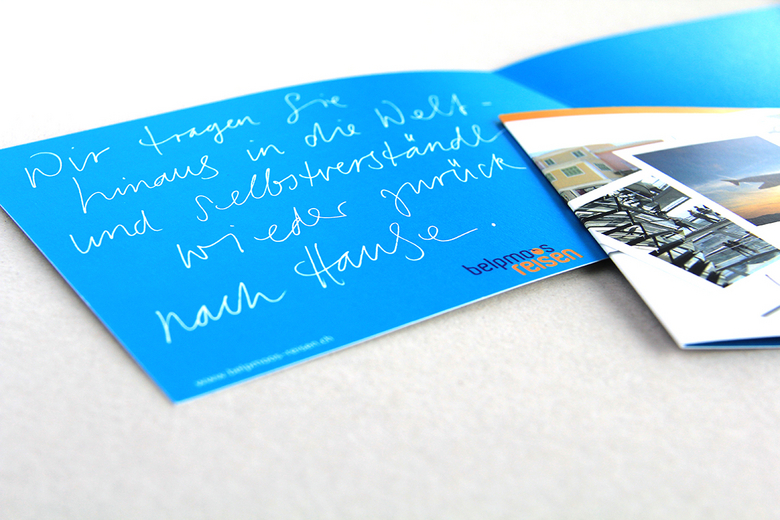 Wir tragen Sie
hinaus in die Welt -
und selbstverständl
wieder zurück
nach Hause.
belpmoos
reisen
www.belpmoos-reisen.ch